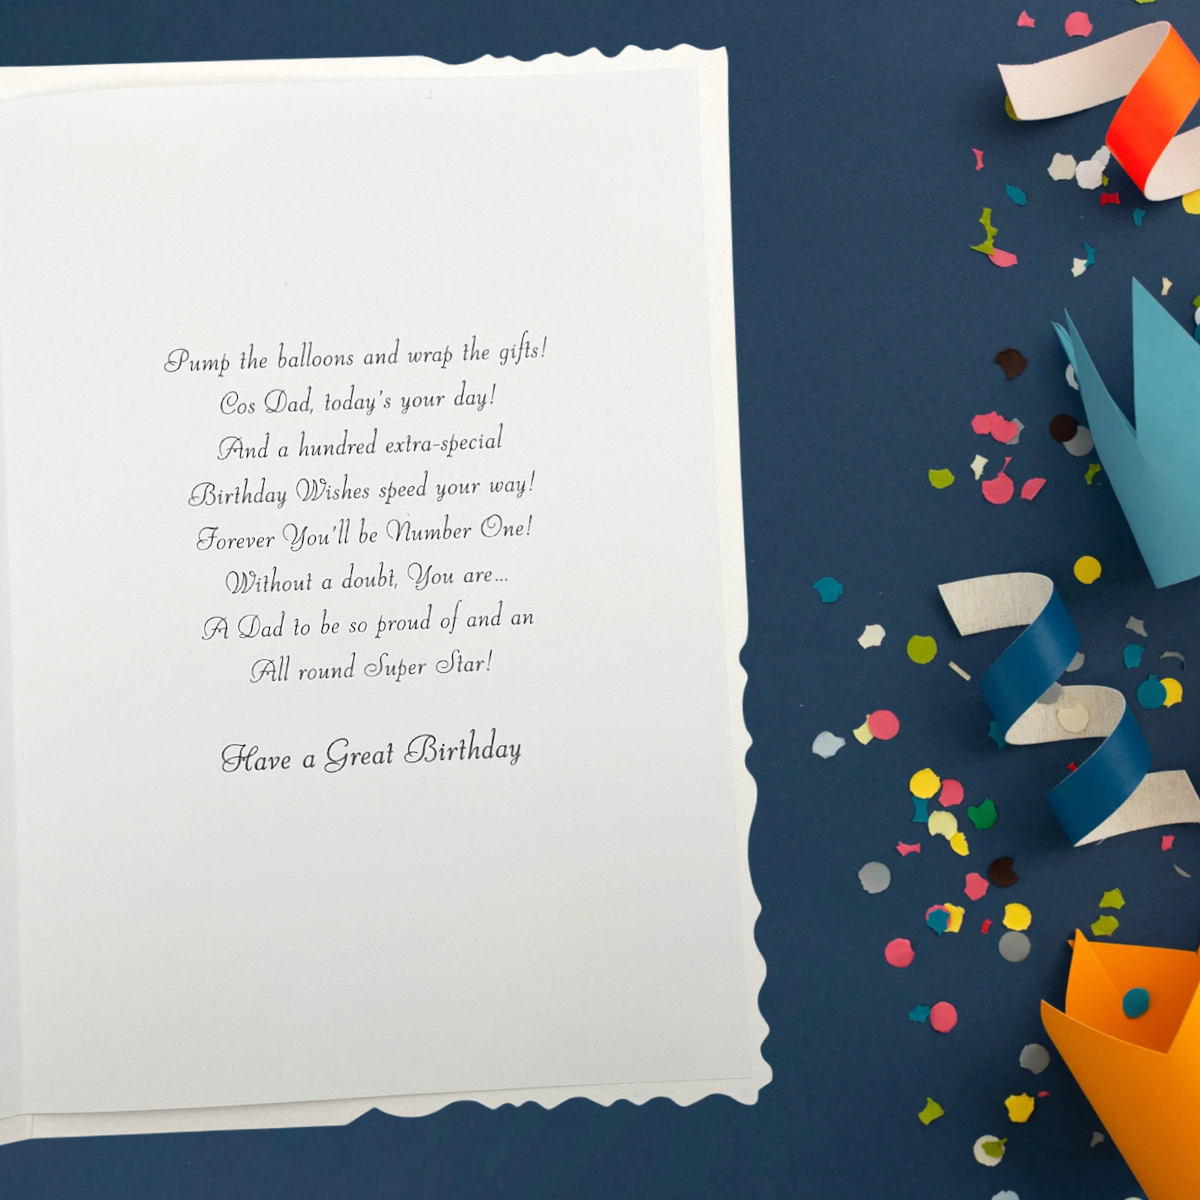 Pump the balloons and wrap the gifts!
Cos Dad, today's your day!
And a hundred extra-special
Birthday Wishes speed your way!
Forever You'll be Number One!
Without a doubt, You are...
A Dad to be so proud of and an
All round Super Star!
Have a Great Birthday